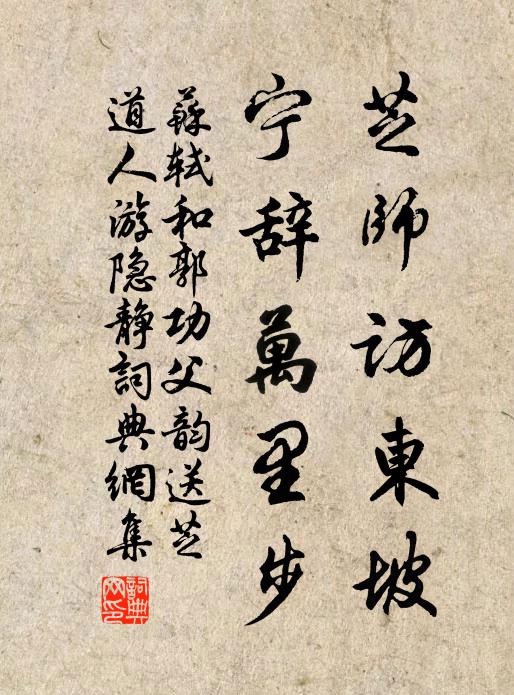 芝師访東坡
宁辞萬里步
蘇轼和郭功父韵送芝
道人游隐静詞典網集
詞典网印